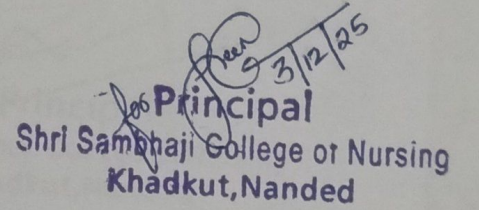 3/12/25
for Principal
Shri Sambhaji College of Nursing
Khadkut, Nanded